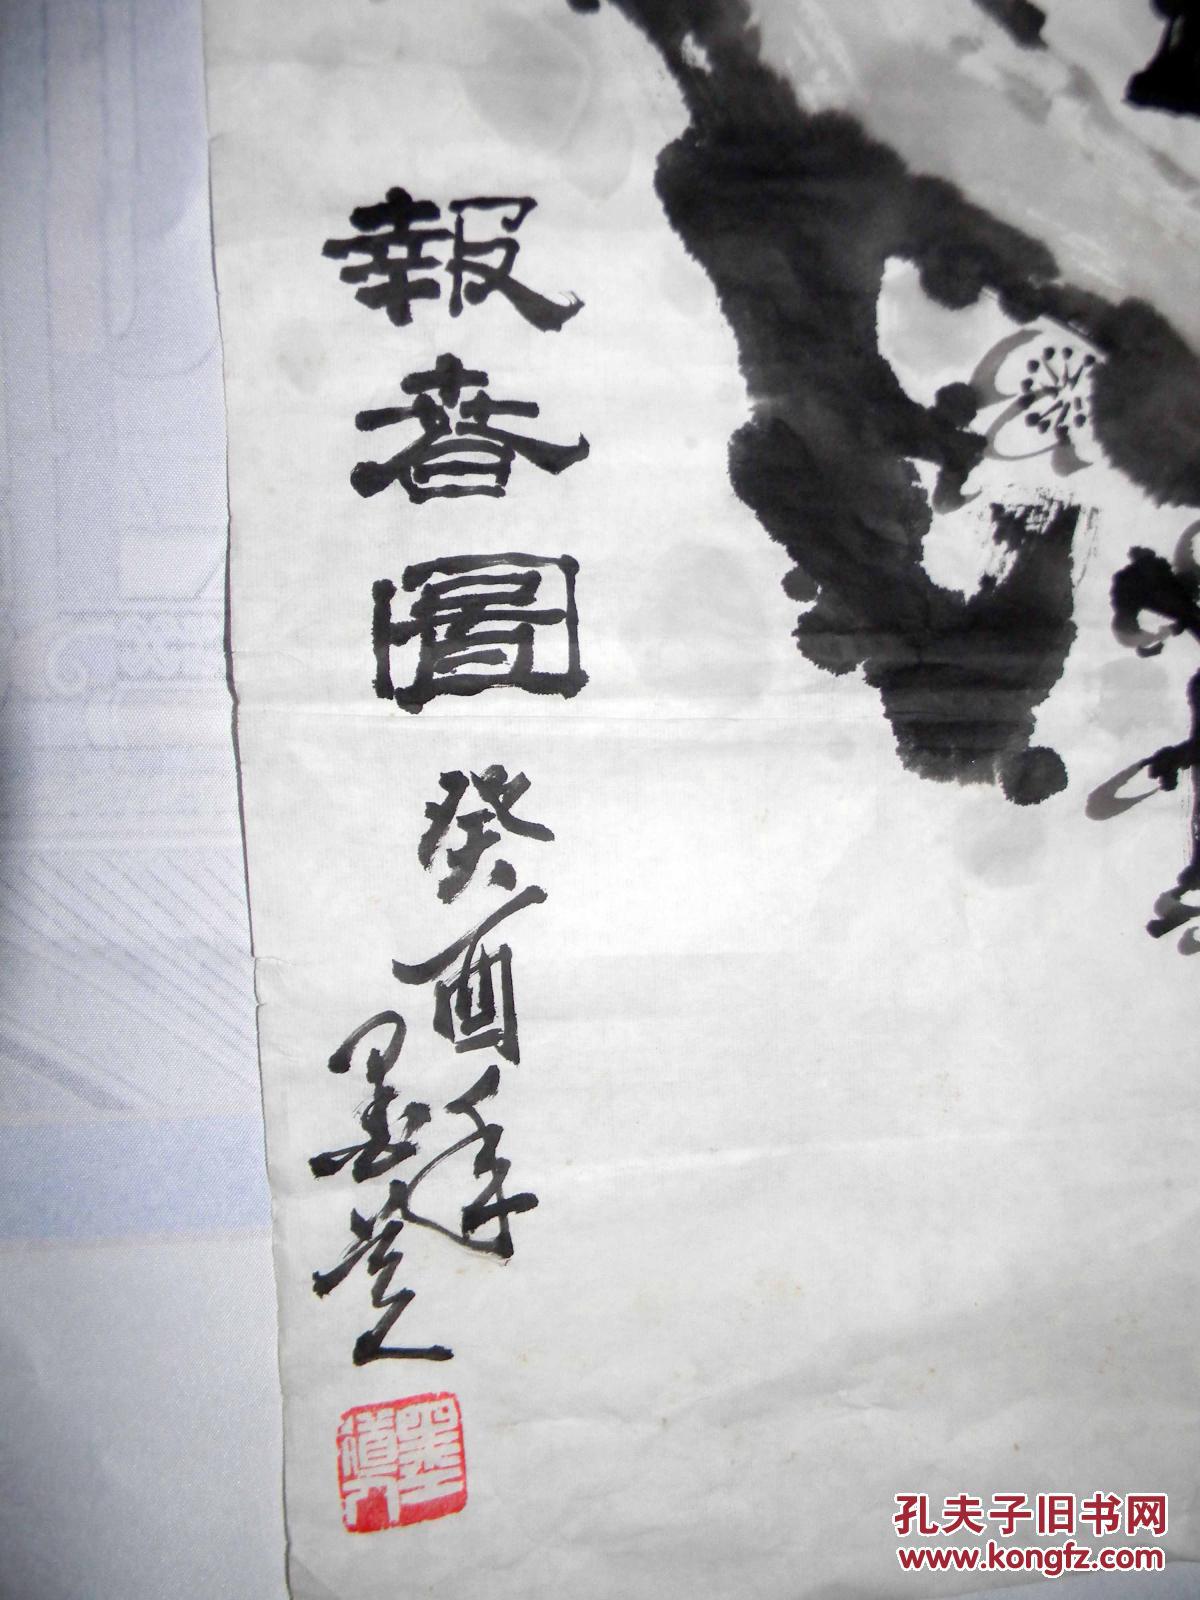 報春圖
癸酉年
墨
孔夫子旧书网
www.kongfz.com